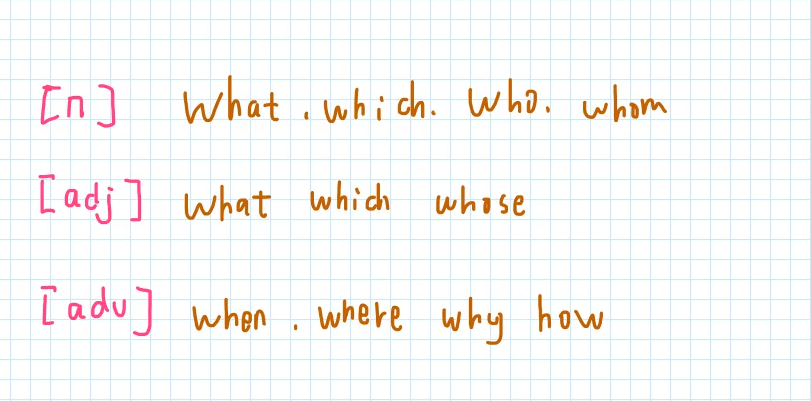 [n] What . which. Who. whom
[adj] What which whose
[adv] when . where why how